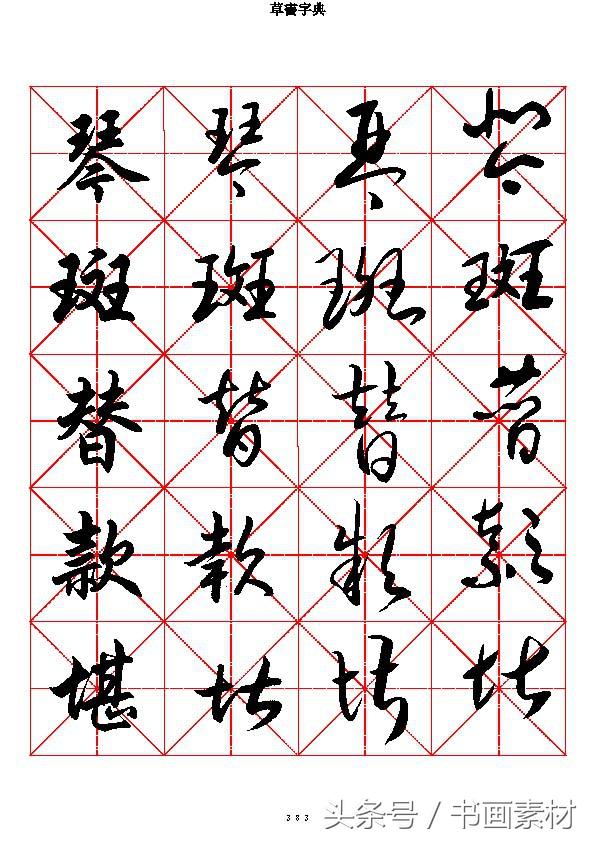 草書字典
琴 琴 琴 琴
斑 斑 斑 斑
替 替 替 替
款 款 款 款
堪 堪 堪 堪
383
头条号 / 书画素材